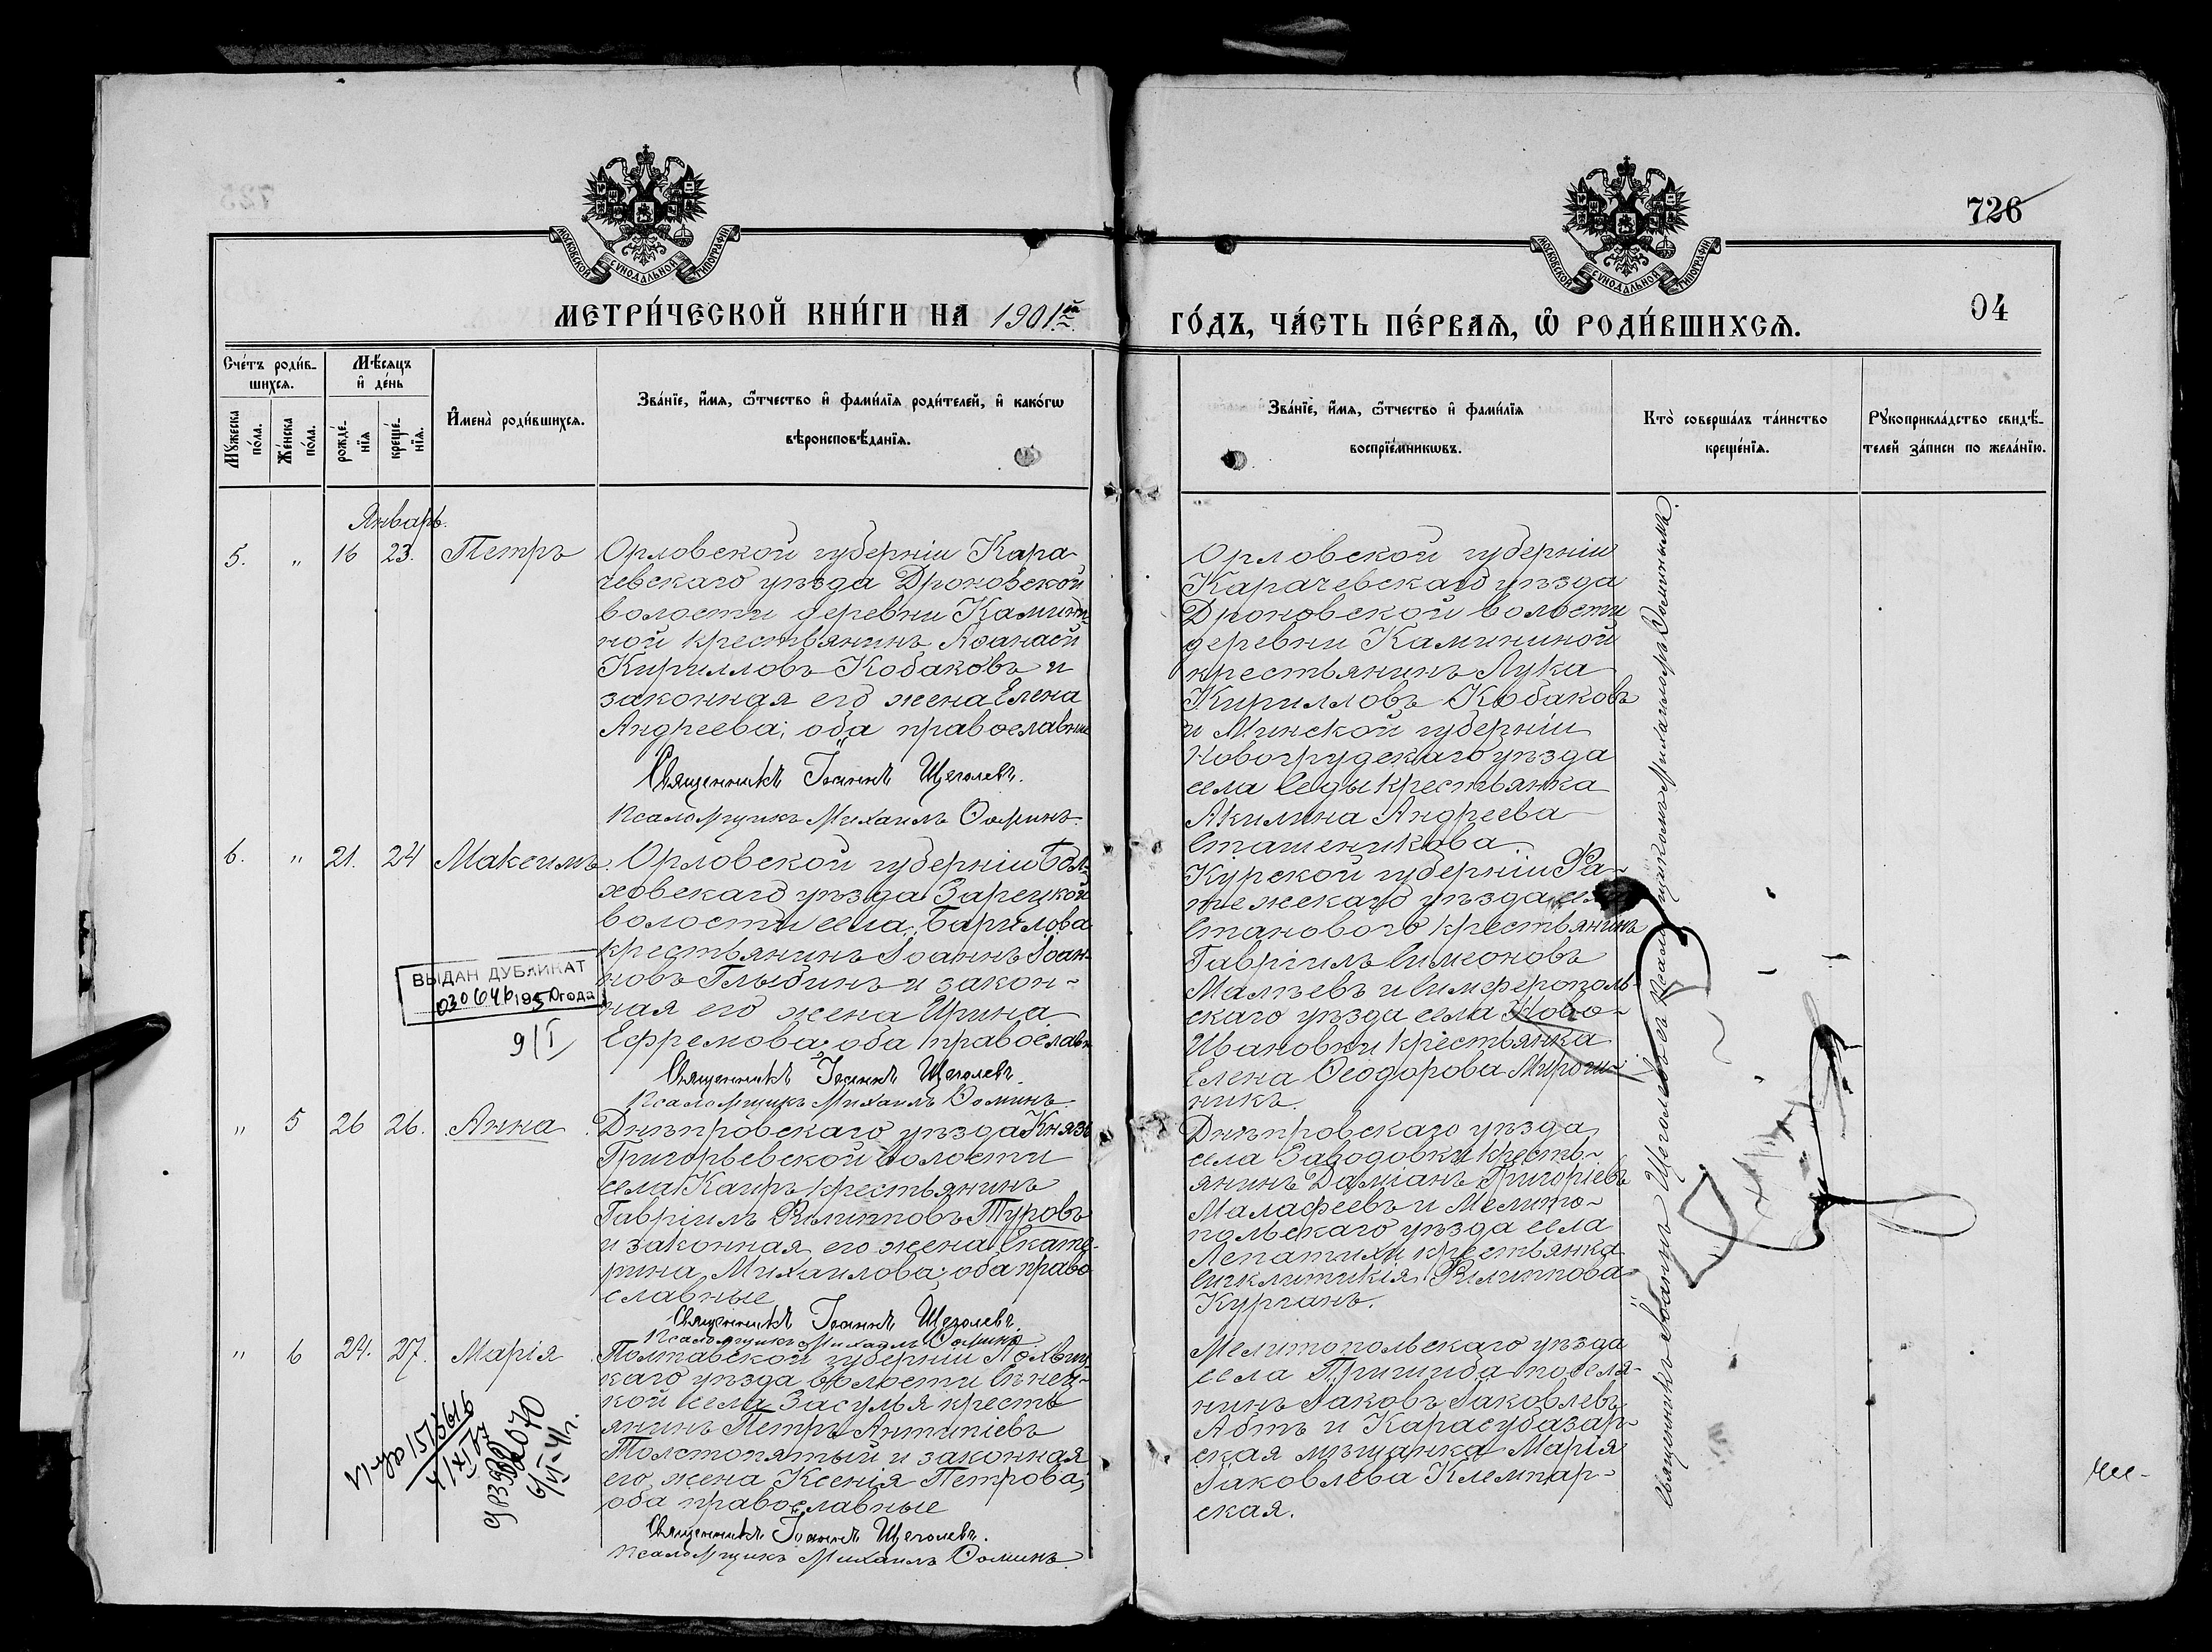 726
04
МОСКОВСКОЙ СѴНОДАЛЬНОЙ ТИПОГРАФІИ
МОСКОВСКОЙ СѴНОДАЛЬНОЙ ТИПОГРАФІИ
МЕТРИ́ЧЕСКОЙ КНИ́ГИ НА 1901й
ГО́ДЪ, ЧА́СТЬ ПЕ́РВАѦ, Ѿ РОДИ́ВШИХСѦ.
Сче́тъ роди́в-
шихсѧ.
Мѣ́сѧцъ
и҆ де́нь
Мꙋ́жеска
по́ла.
Же́нска
по́ла.
рожде́-
нїѧ
креще́-
нїѧ.
И҆мена̀ роди́вшихсѧ.
Зва́нїе, и҆́мѧ, ѻ҆́тчество и҆ фами́лїѧ роди́телей, и҆ како́гѡ
вѣроисповѣ́данїѧ.
Зва́нїе, и҆́мѧ, ѻ҆́тчество и҆ фами́лїѧ
воспрїе́мникѡвъ.
Кто̀ соверша́лъ та́инство
креще́нїѧ.
Рꙋкоприкла́дство свидѣ́-
телей за́писи по жела́нїю.
Январь.
5. „ 16 23. Петръ
Орловской губерніи Кара-
чевскаго уѣзда Дроновской
волости деревни Каминин-
ной крестьянинъ Аѳанасій
Кирилловъ Кобаковъ и
законная его жена Елена
Андреева; оба православные
Священникъ Іоаннъ Щеголевъ.
Псаломщикъ Михаилъ Ѳоминъ.
Орловской губерніи
Карачевскаго уѣзда
Дроновской волости
деревни Камининой
крестьянинъ Лука
Кирилловъ Кобаковъ
и Минской губерніи
Новогрудскаго уѣзда
села крестьянка
Акилина Андреева
Сташеникова.
6. „ 21. 24 Максимъ.
Орловской губерніи Бол-
ховскаго уѣзда Зарецкой
волости села Барилова
крестьянинъ Іоаннъ Іоан-
новъ Глыбинъ и закон-
ная его жена Ирина
Ефремова; оба православн
Священникъ Іоаннъ Щеголевъ.
Псаломщикъ Михаилъ Ѳоминъ.
ВЫДАН ДУБЛИКАТ
030646 1950 года
9/I
Курской губерніи Фа-
тежскаго уѣзда села
Станового крестьянинъ
Гавріилъ Симеоновъ
Малѣевъ и Симферополь-
скаго уѣзда села Ново-
Ивановки крестьянка
Елена Ѳеодорова Мирош-
никъ.
„ 5 26 26. Анна
Днѣпровскаго уѣзда Князь
Григорьевской волости
села Каиръ крестьянинъ
Гавріилъ Филипповъ Туровъ
и законная его жена Екате-
рина Михаилова; оба право
славные
Священникъ Іоаннъ Щеголевъ.
Псаломщикъ Михаилъ Ѳоминъ
Днѣпровскаго уѣзда
села Заводовки кресть-
янинъ Даміанъ Григоріевъ
Малафеевъ и Мелито-
польскаго уѣзда села
Лепатихи крестьянка
Синклитикія Филиппова
Курганъ.
„ 6 24. 27. Марія
Полтавской губерніи Лохвиц
каго уѣзда волости Снец-
кой села Засулья кресть
янинъ Петръ Антипіевъ
Толстопятый и законная
его жена Ксенія Петрова;
оба православные
Священникъ Іоаннъ Щеголевъ.
Псаломщикъ Михаилъ Ѳоминъ.
Мелитопольскаго уѣзда
села Пришиба поселя-
нинъ Іаковъ Іаковлевъ
Абтъ и Карасубазар-
ская мѣщанка Марія
Іаковлева Клемпар-
ская.
Священникъ Іоаннъ Щеголевъ съ псаломщикомъ Михаиломъ Ѳоминымъ.